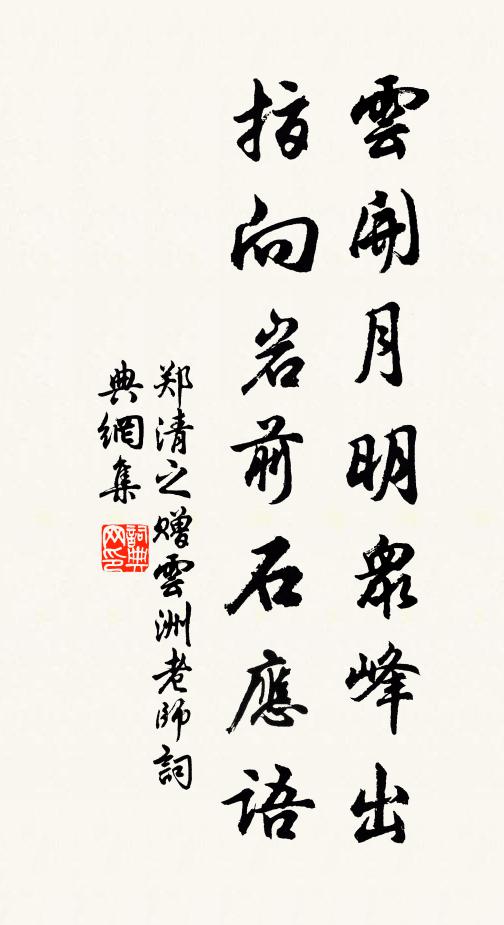 雲開月明衆峰出
指向岩前石應語
郑清之赠雲洲老師詞
典網集
詞典
网印